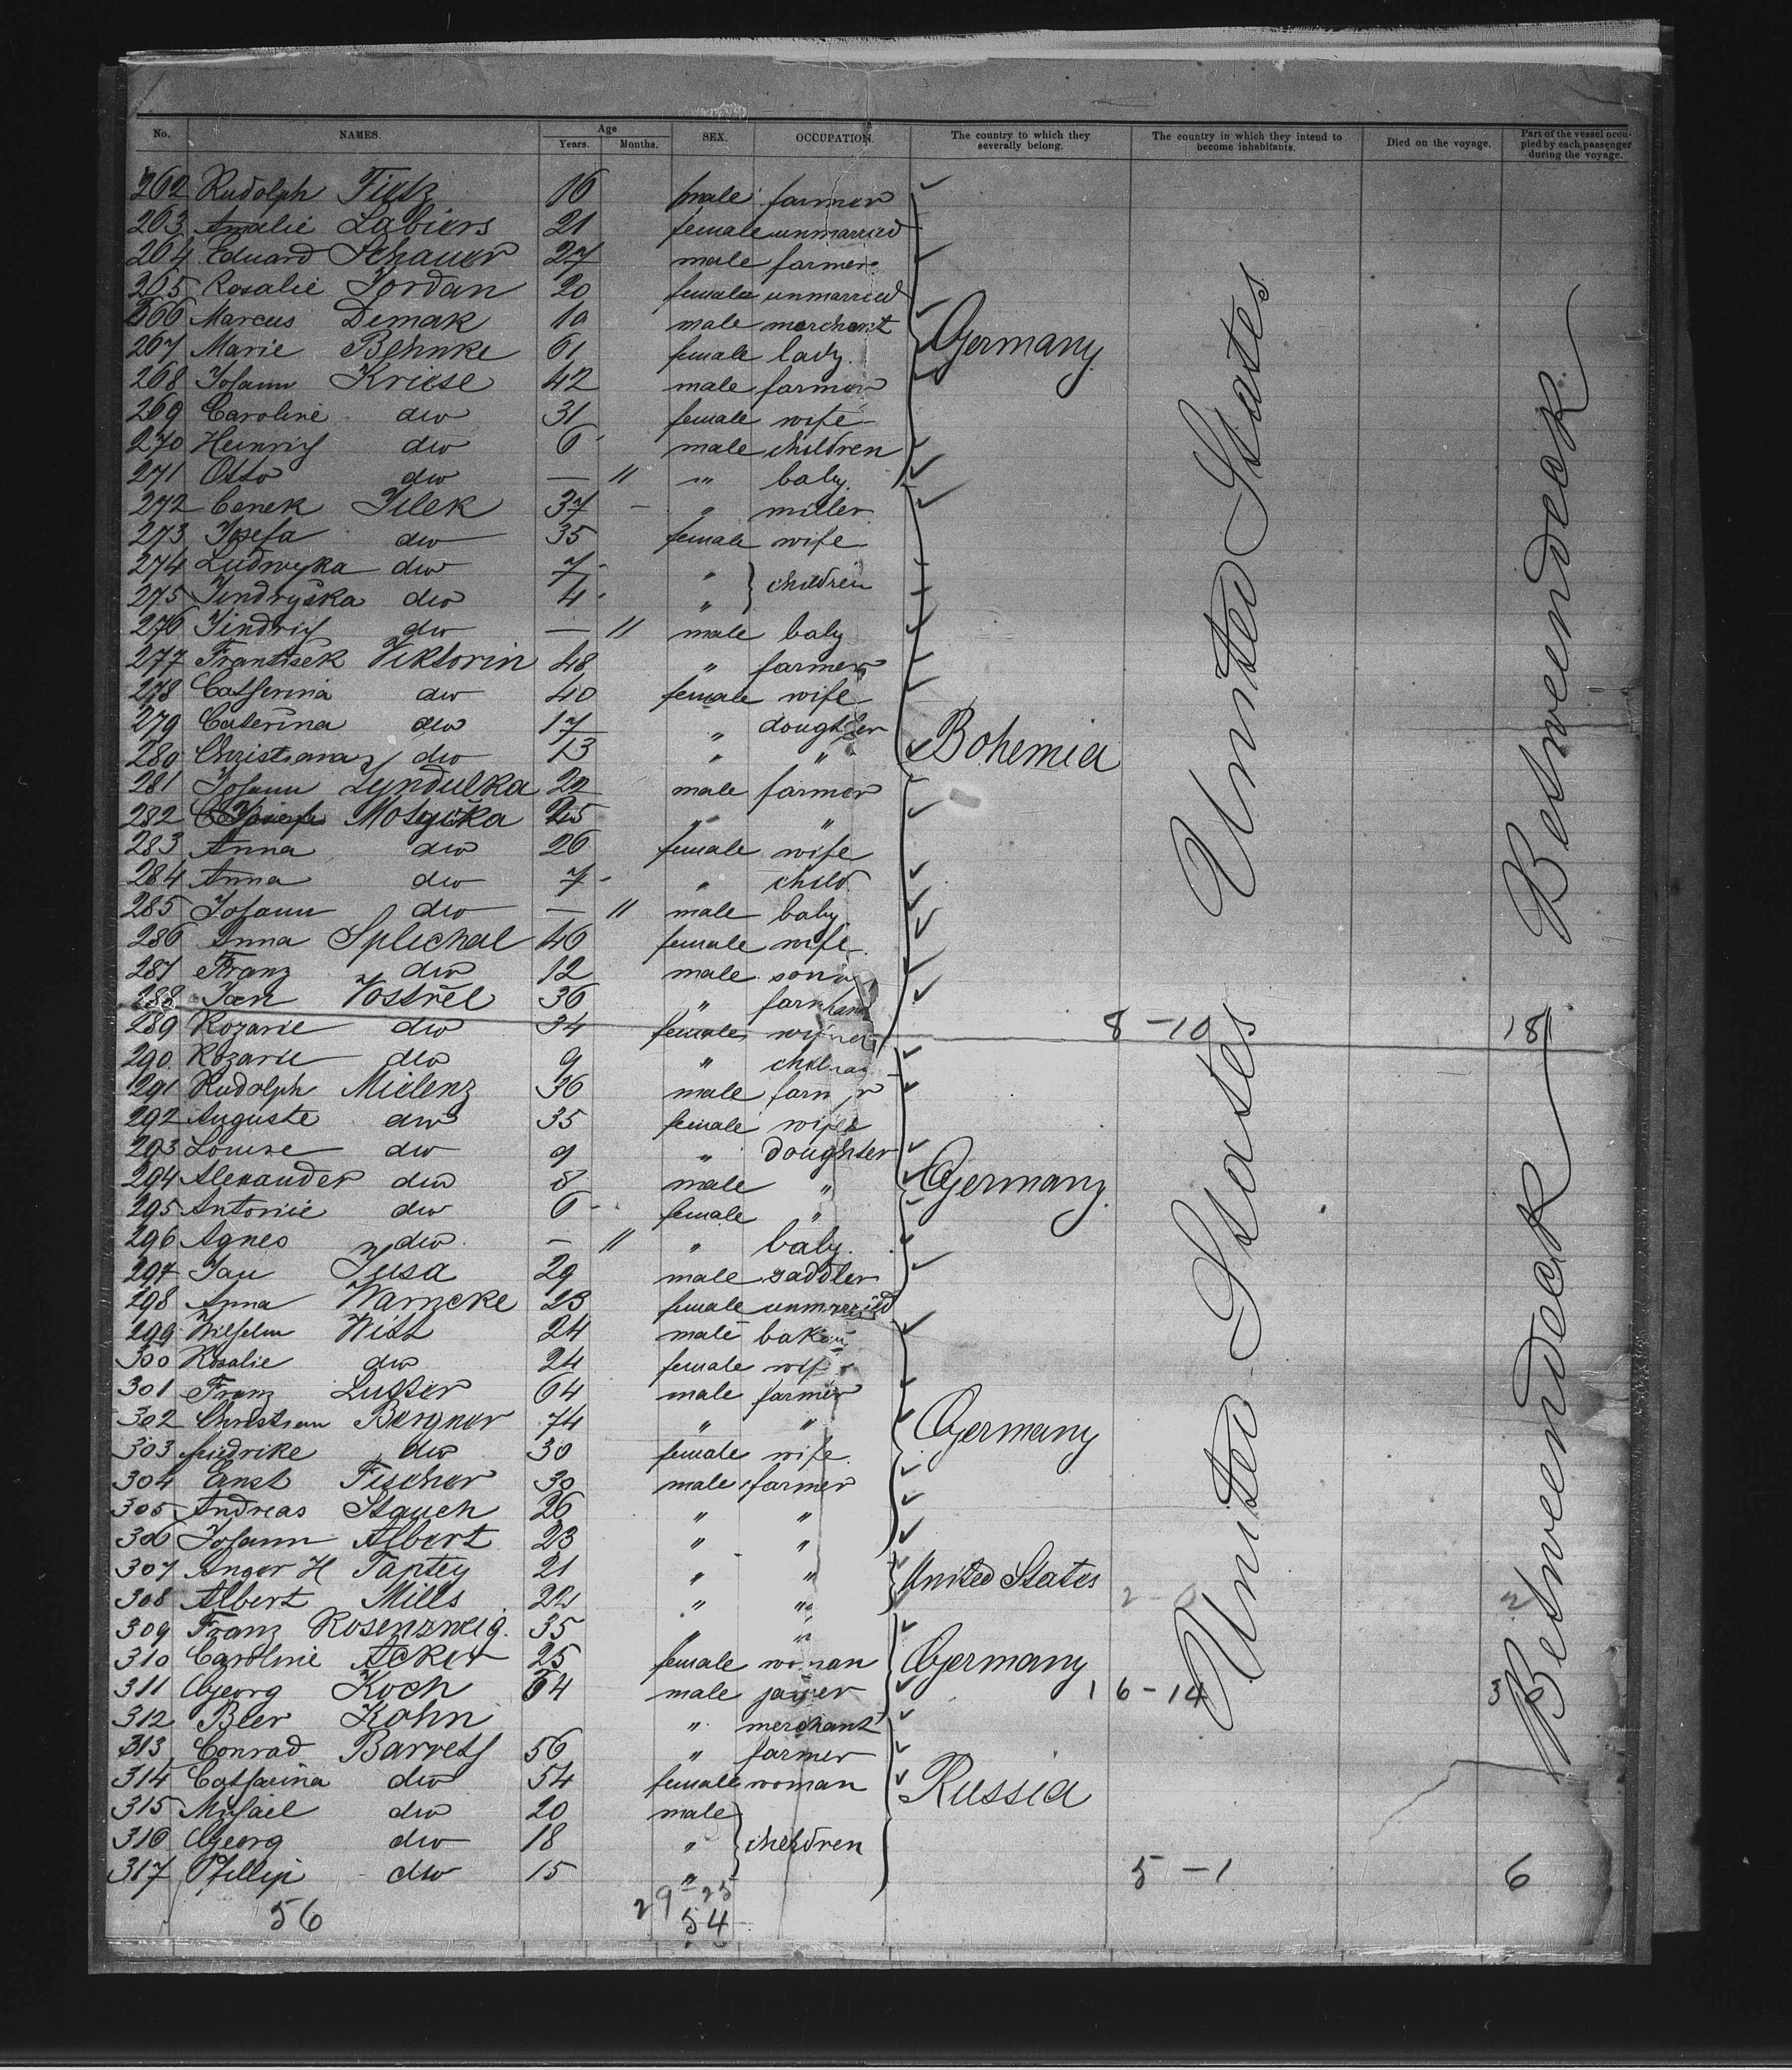 No. NAMES. Age Years. Months. SEX. OCCUPATION. The country to which they severally belong. The country in which they intend to become inhabitants. Died on the voyage. Part of the vessel occupied by each passenger during the voyage.
262 Rudolph Tietz 16 male farmer
263 Amalie Labiers 21 female unmarried
264 Eduard Schauer 27 male farmer
265 Rosalie Jordan 20 female unmarried
266 Marcus Demak 19 male merchant
267 Marie Behnke 61 female lady Germany
268 Johann Kriese 42 male farmer
269 Caroline do 31 female wife
270 Heinrich do 6 male children
271 Otto do — 11 " baby
272 Cenek Jilek 37 — " miller
273 Josefa do 35 female wife
274 Ludwyka do 7 " children
275 Jindryska do 4 "
276 Jindrich do — 11 male baby
277 Frantisek Viktorin 48 " farmer
278 Catherina do 40 female wife
279 Caterina do 17 " doughter
280 Christiana do 13 " " Bohemia
281 Johann Zyndulka 22 male farmer
282 Motyčka 25 " "
283 Anna do 26 female wife
284 Anna do 7 " child
285 Johann do — 11 male baby
286 Anna Splechal 46 female wife
287 Franz do 12 male sonn
288 Jan Vostřel 36 "
289 Rozarie do 34 female 8-10 18
290 Rozarie do 9 "
291 Rudolph Mielenz 36 male farmer
292 Auguste do 35 female wife
293 Louise do 9 " doughter
294 Alexander do 8 male " Germany
295 Antonie do 6 female "
296 Agnes do — 11 " baby.
297 Jan Jusa 29 male saddler
298 Anna Warncke 23 female unmarried
299 Wilhelm Witt 24 male baker
300 Rosalie do 24 female wife
301 Franz Lugter 64 male farmer
302 Christian Bergner 74 " " Germany
303 Friedrike do 30 female wife.
304 Ernst Fischer 30 male farmer
305 Andreas Stauch 26 " "
306 Johann Albert 23 " "
307 Anger H Taptey 21 " " United States
308 Albert Mills 22 " " 2-0 2
309 Franz Rosenzweig. 35 " "
310 Caroline Acker 25 female woman Germany
311 Georg Koch 64 male 16-14
312 Beer Kohn " merchant
313 Conrad Barreth 56 " farmer
314 Catharina do 54 female woman Russia
315 Michael do 20 male
316 Georg do 18 " children
317 Phillip do 15 " 5-1 6
56 29-25
54
United States
United States
Betweendeck
Betweendeck